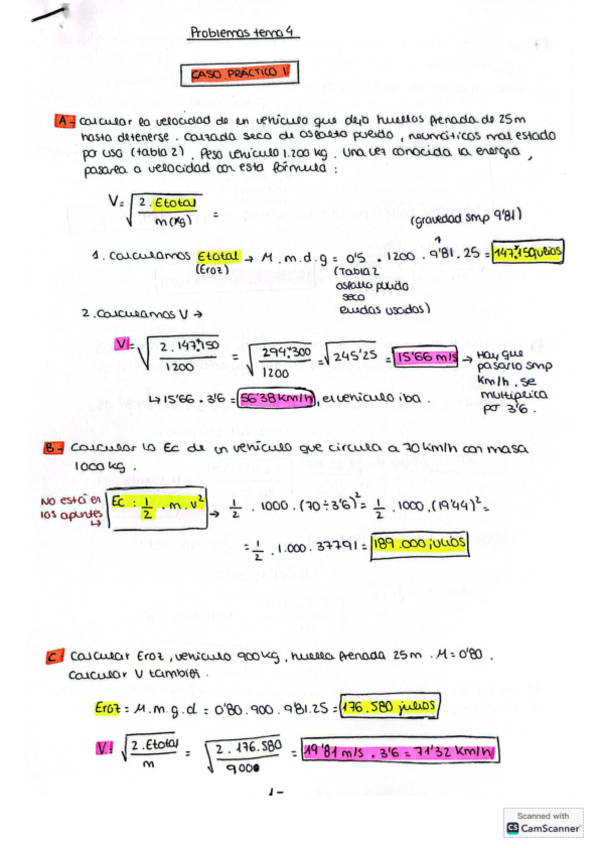 Problemas tema 4
CASO PRÁCTICO 1
A- Calcular la velocidad de un vehículo que dejó huellas frenada de 25m
hasta detenerse. Calzada seca de asfalto pulido, neumáticos mal estado
por uso (tabla 2). Peso vehículo 1.200 kg. Una vez conocida la energía,
pasarla a velocidad con esta fórmula:
V = √ 2. Etotal / m(kg) =
(gravedad smp 9'81)
1. Calculamos Etotal → M.m.d.g = 0'5 . 1200 . 9'81 . 25 = 147.150 julios
(Eroz) (Tabla 2
asfalto pulido
seco
ruedas usadas)
2. Calculamos V →
V = √ 2.147.150 / 1200 = √ 294.300 / 1200 = √245'25 = 15'66 m/s → Hay que
pasarlo smp
km/h. Se
multiplica
por 3'6.
↳ 15'66 . 3'6 = 56'38 km/h, el vehículo iba.
B- Calcular la Ec de un vehículo que circula a 70 km/h con masa
1000 kg.
No está en
los apuntes
↳
Ec: 1/2 . m . v² → 1/2 . 1000 . (70 ÷ 3'6)² = 1/2 . 1000 . (19'44)² =
= 1/2 . 1.000 . 377'91 = 189.000 julios
C: Calcular Eroz, vehículo 900 kg, huella frenada 25m . M = 0'80.
Calcular V también.
Eroz = M.m.g.d = 0'80.900.9'81.25 = 176.580 julios
V: √ 2.Etotal / m = √ 2.176.580 / 900 = 19'81 m/s . 3'6 = 71'32 km/h
1-
Scanned with
CS CamScanner